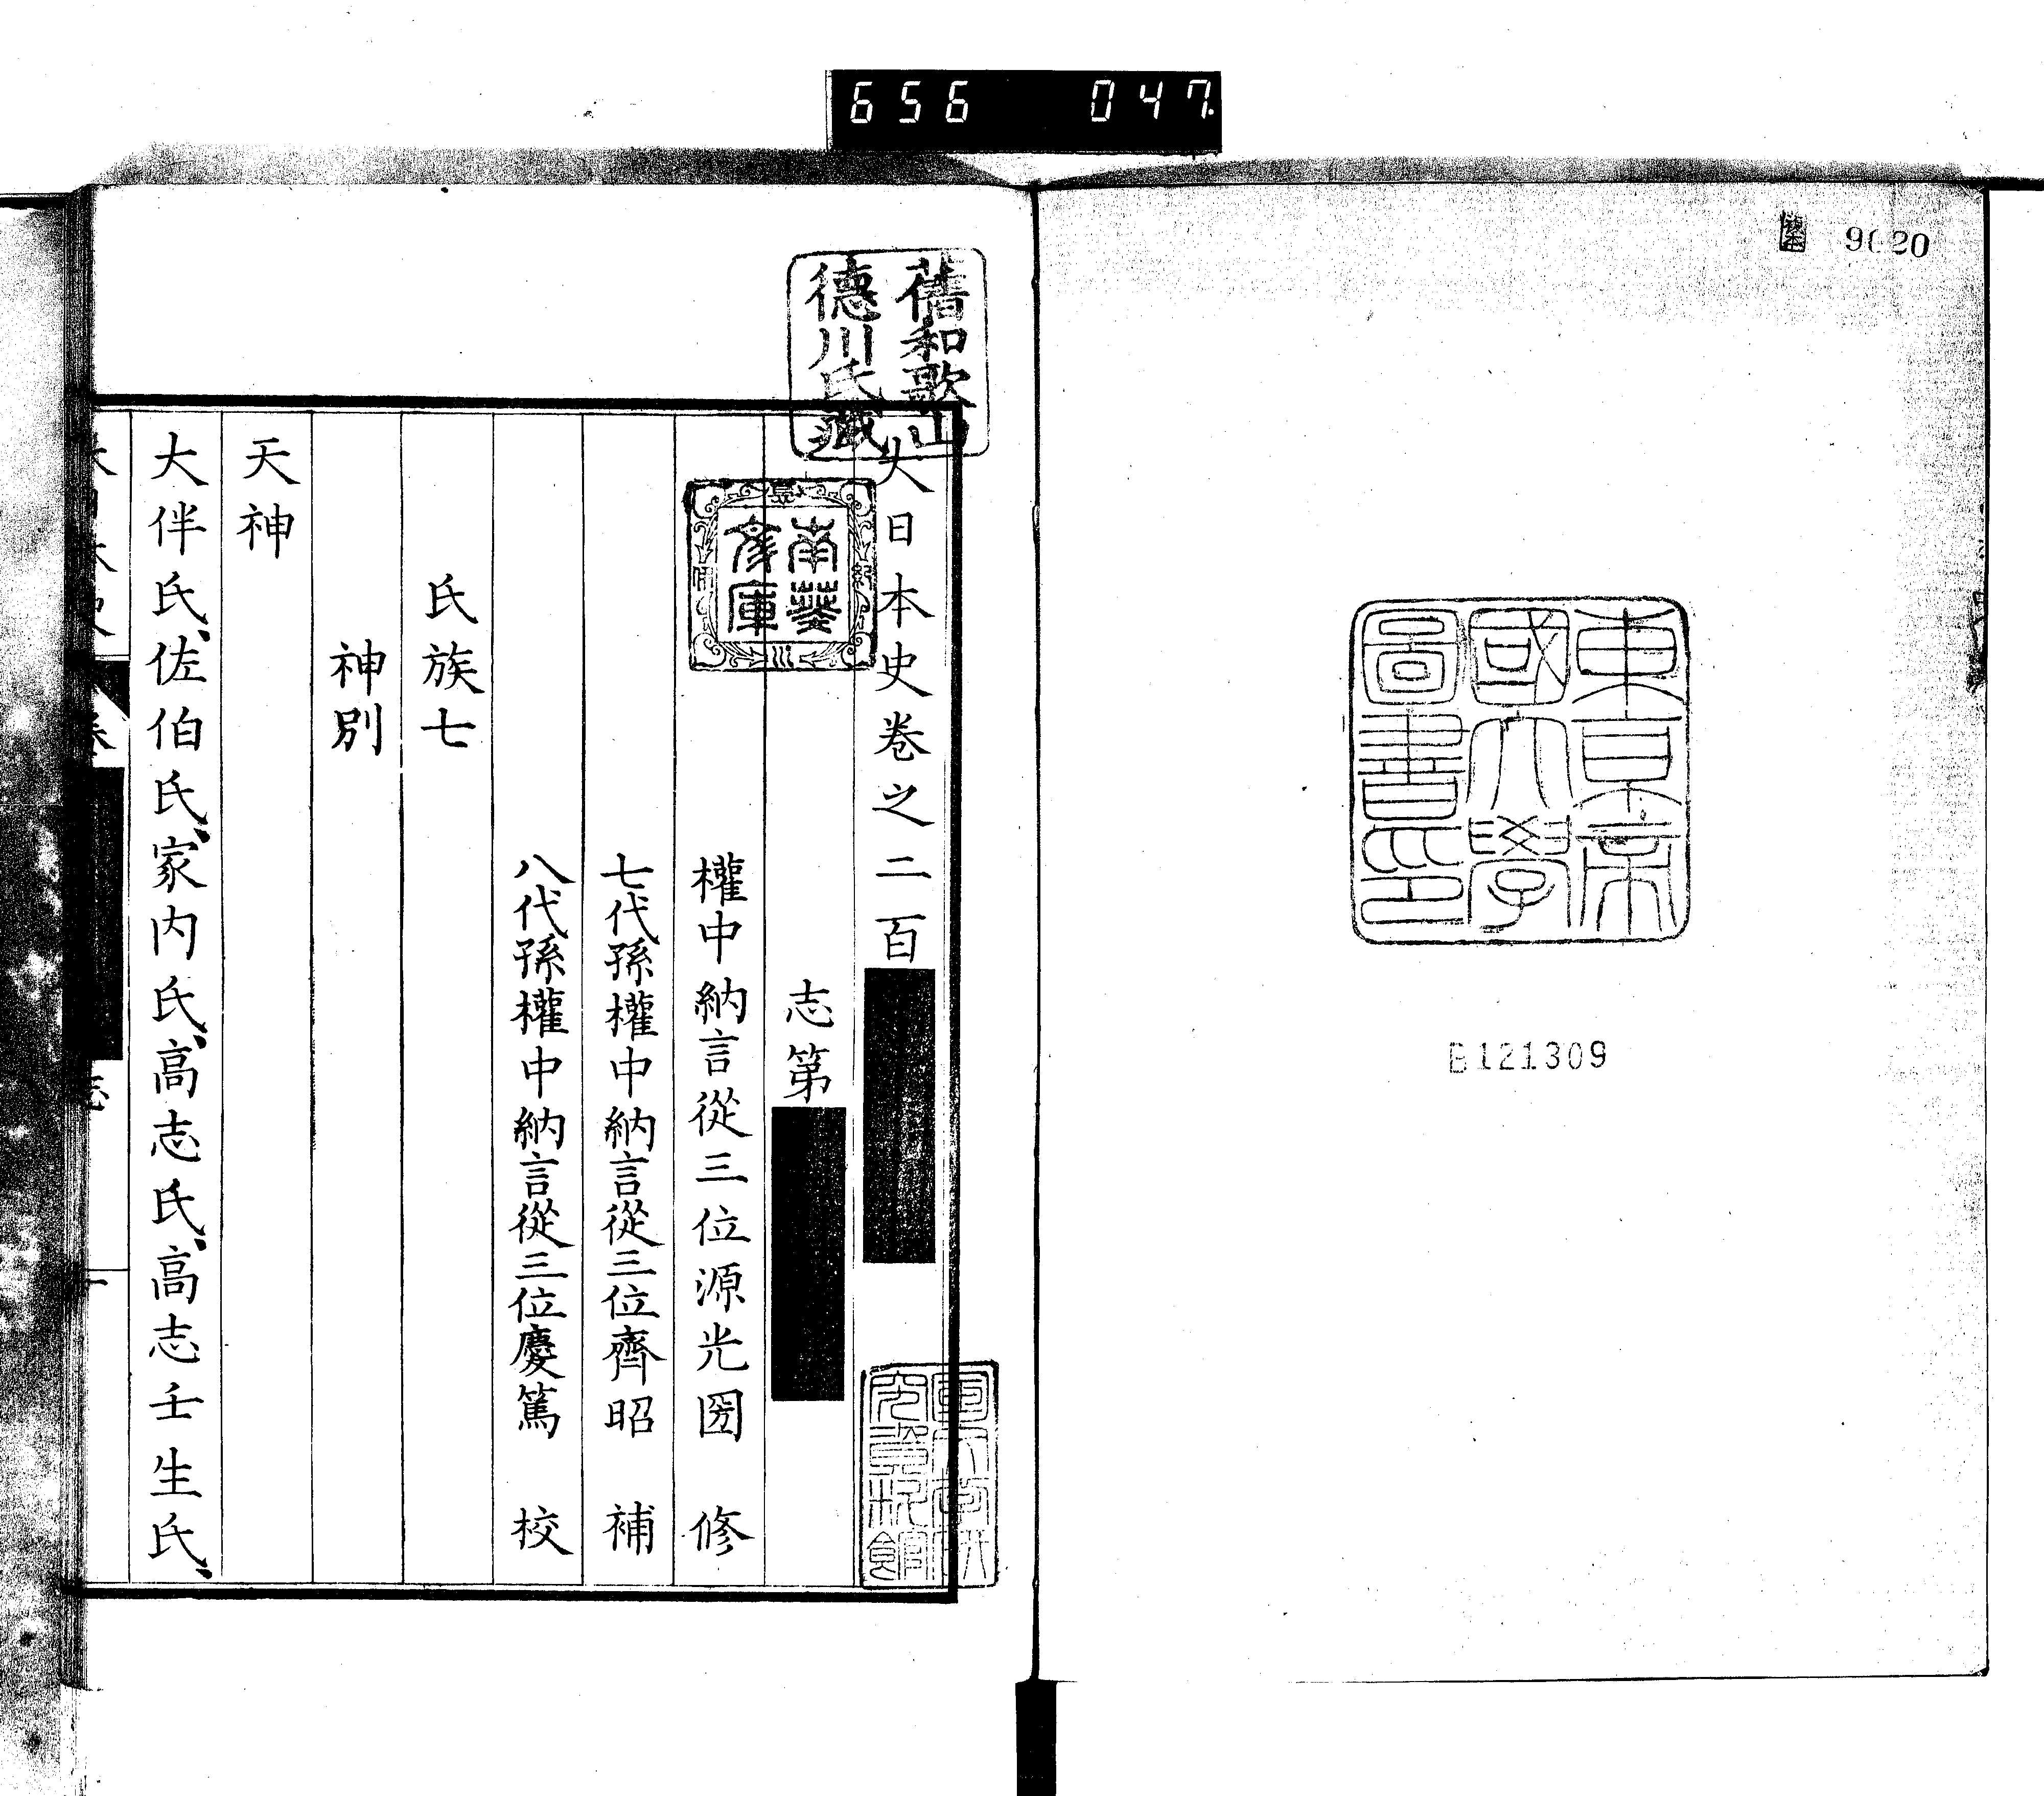 656 047
9020
東京帝
國大學
圖書印
B121309
舊和歌山
德川氏藏
南葵
文庫
大日本史卷之二百
志第
權中納言從三位源光圀 修
七代孫權中納言從三位齊昭 補
八代孫權中納言從三位慶篤 校
氏族七
神別
天神
大伴氏、佐伯氏、家内氏、高志氏、高志壬生氏、